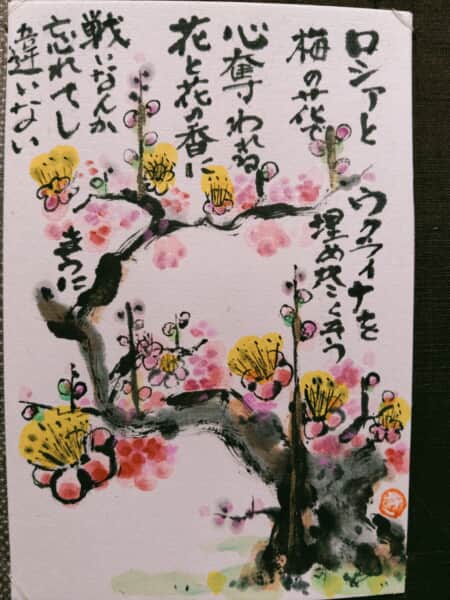 ロシアと
ウクライナを
梅の花で
埋め尽くそう
心奪われる
花と花の香に
戦いなんか
忘れてし
まうに
違いない